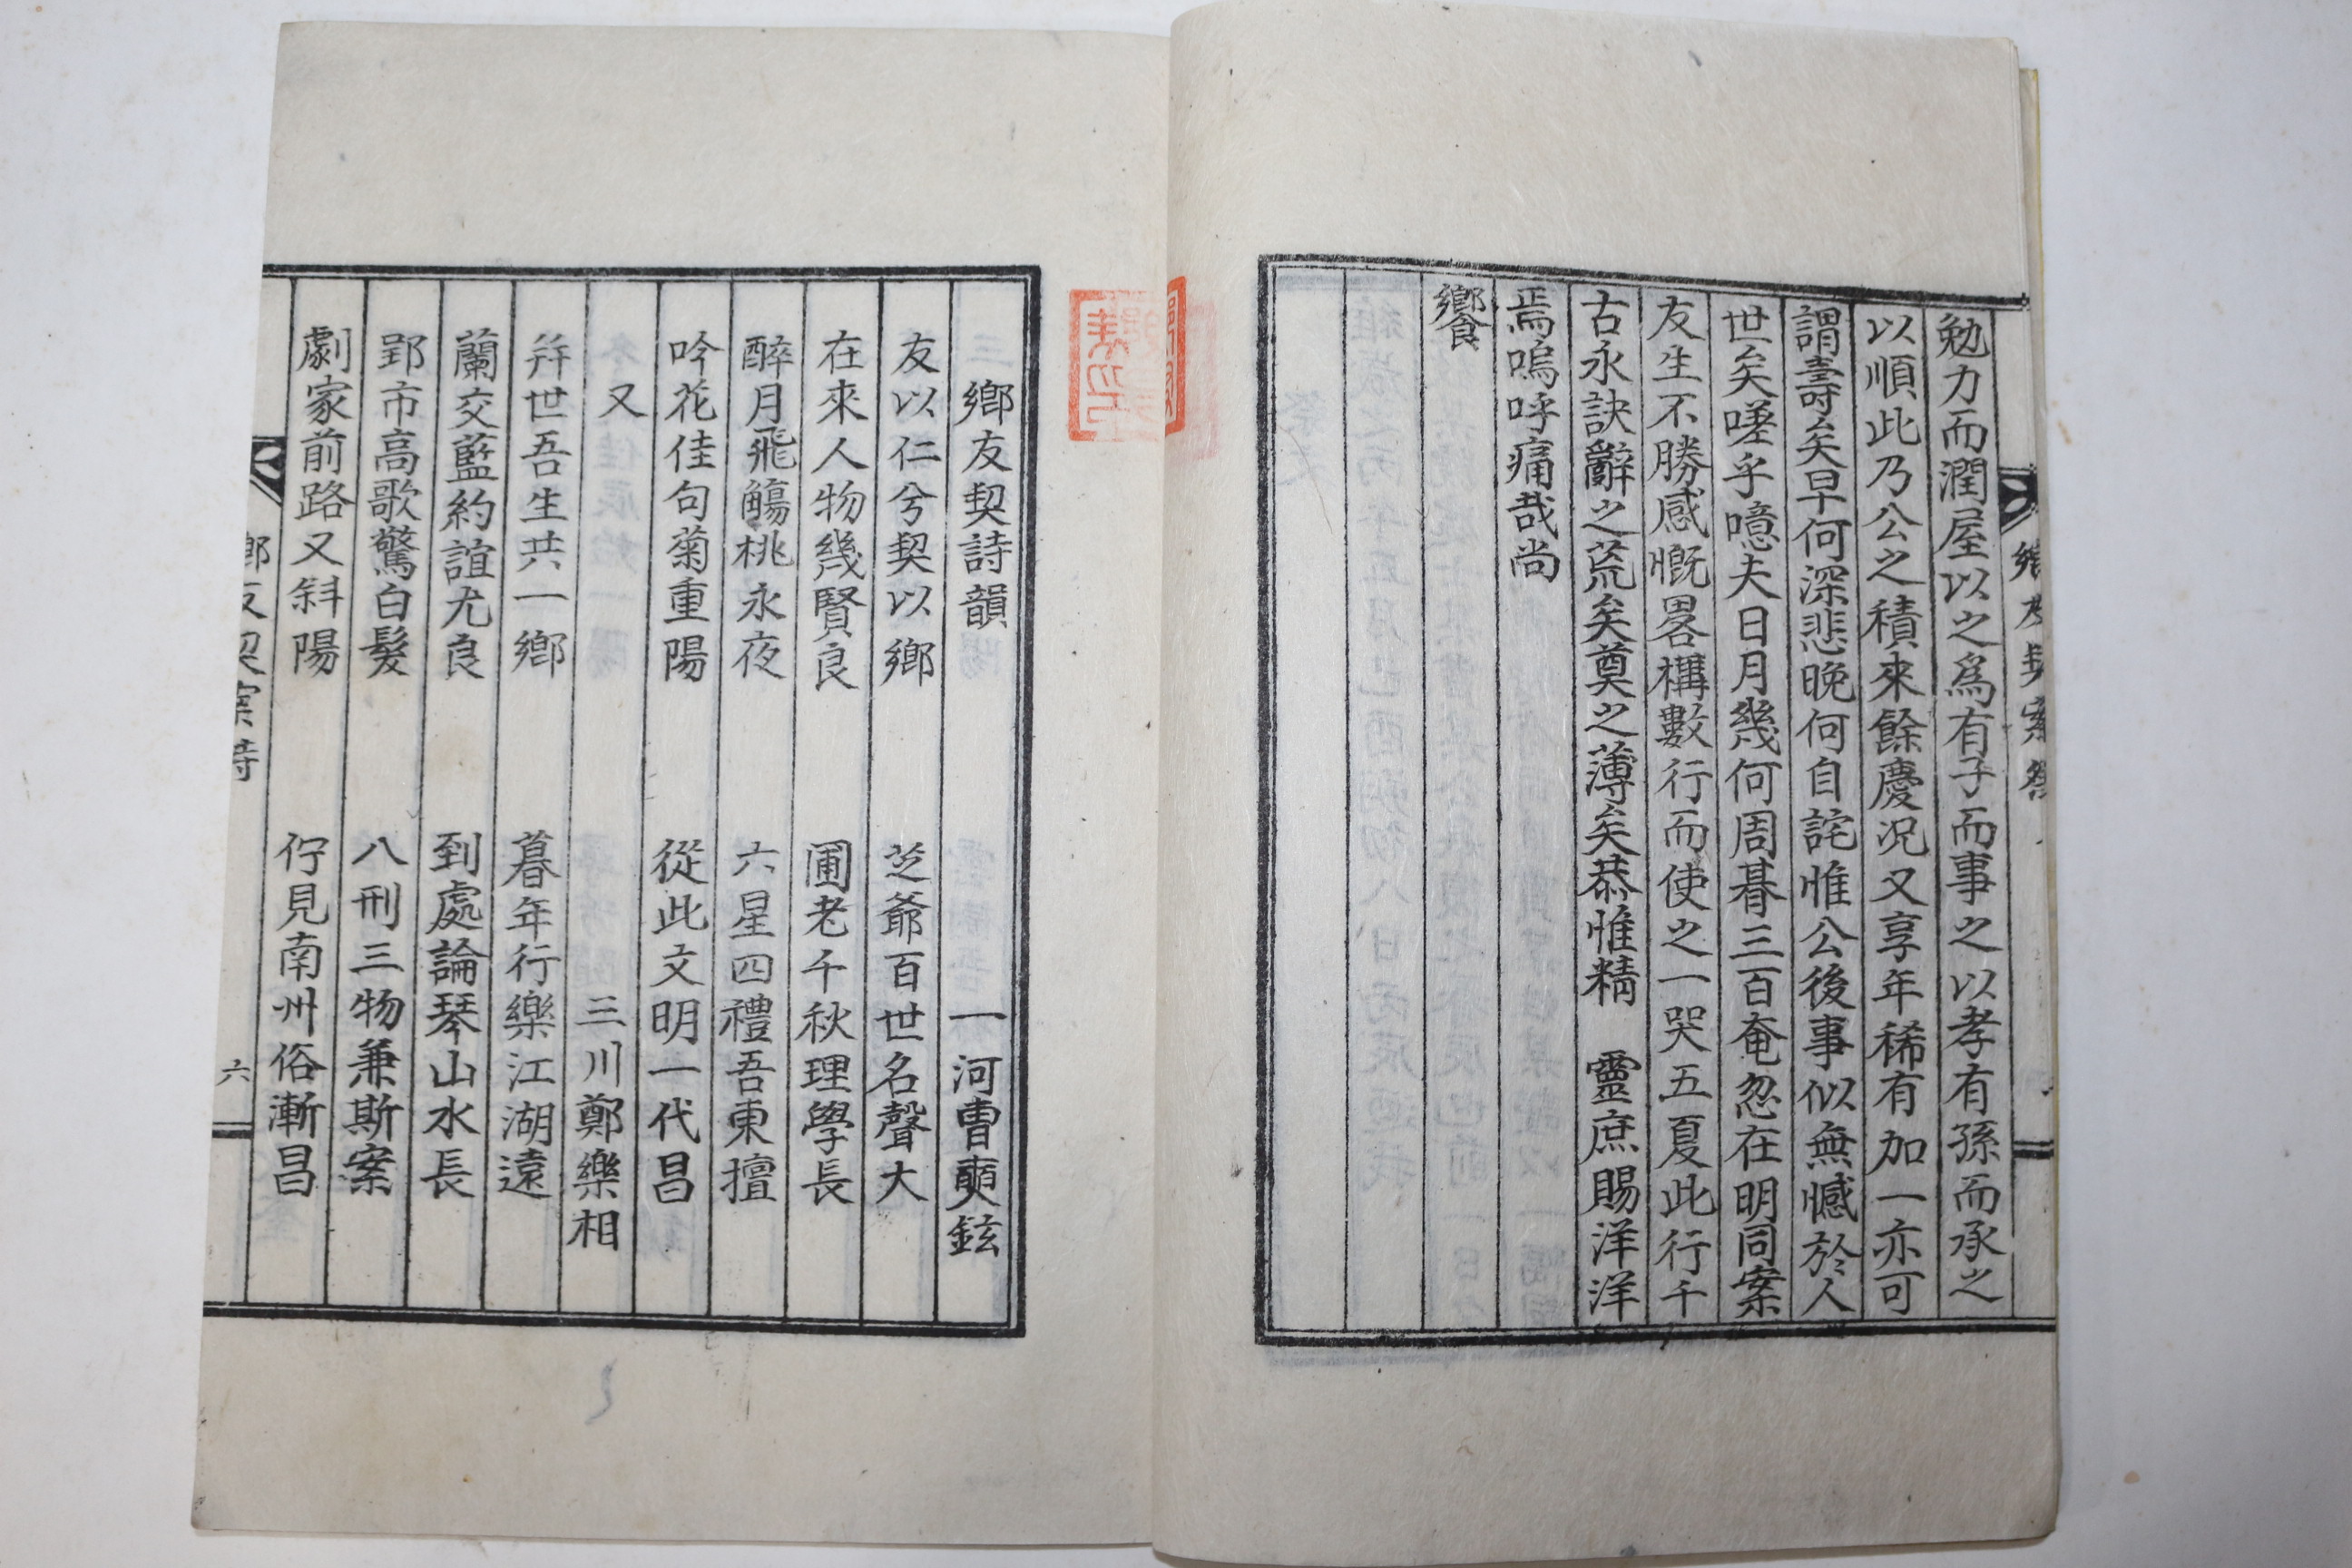 勉力而潤屋以之爲有子而事之以孝有孫而承之
以順此乃公之積來餘慶况又享年稀有加一亦可
謂壽矣早何深悲晩何自詫惟公後事似無憾於人
世矣嗟乎噫夫日月幾何周朞三百奄忽在明同案
友生不勝感慨畧構數行而使之一哭五夏此行千
古永訣辭之荒矣奠之薄矣恭惟精 靈庶賜洋洋
焉嗚呼痛哉尚
饗
鄕友契詩韻 一河曺奭鉉
友以仁兮契以鄕 芝爺百世名聲大
在來人物幾賢良 圃老千秋理學長
醉月飛觴桃永夜 六星四禮吾東擅
吟花佳句菊重陽 從此文明一代昌
又 三川鄭樂相
幷世吾生共一鄕 暮年行樂江湖遠
蘭交藍約誼尤良 到處論琴山水長
郢市高歌驚白髮 八刑三物兼斯案
劇家前路又斜陽 佇見南州俗漸昌
鄕友契案詩
六